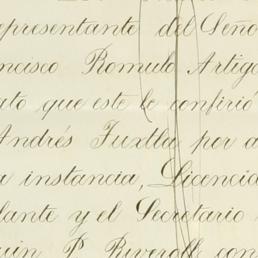 epresentante del Seño
ncisco Romulo Artigo
ato que este le confirió
Andrés Tuxtla por a
a instancia, Licencia
lante y el Secretario
uin P. Riveroll con